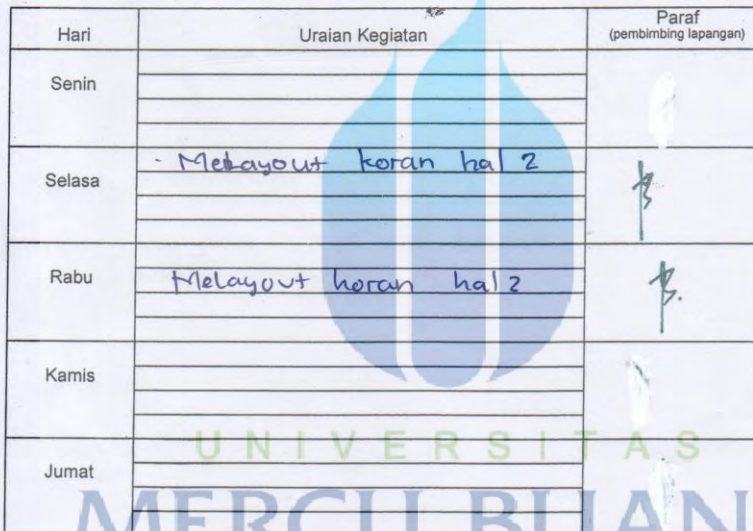 Hari Uraian Kegiatan Paraf
(pembimbing lapangan)
Senin
Selasa - Melayout koran hal 2
Rabu Melayout koran hal 2
Kamis
UNIVERSITAS
Jumat
MERCU BUAN